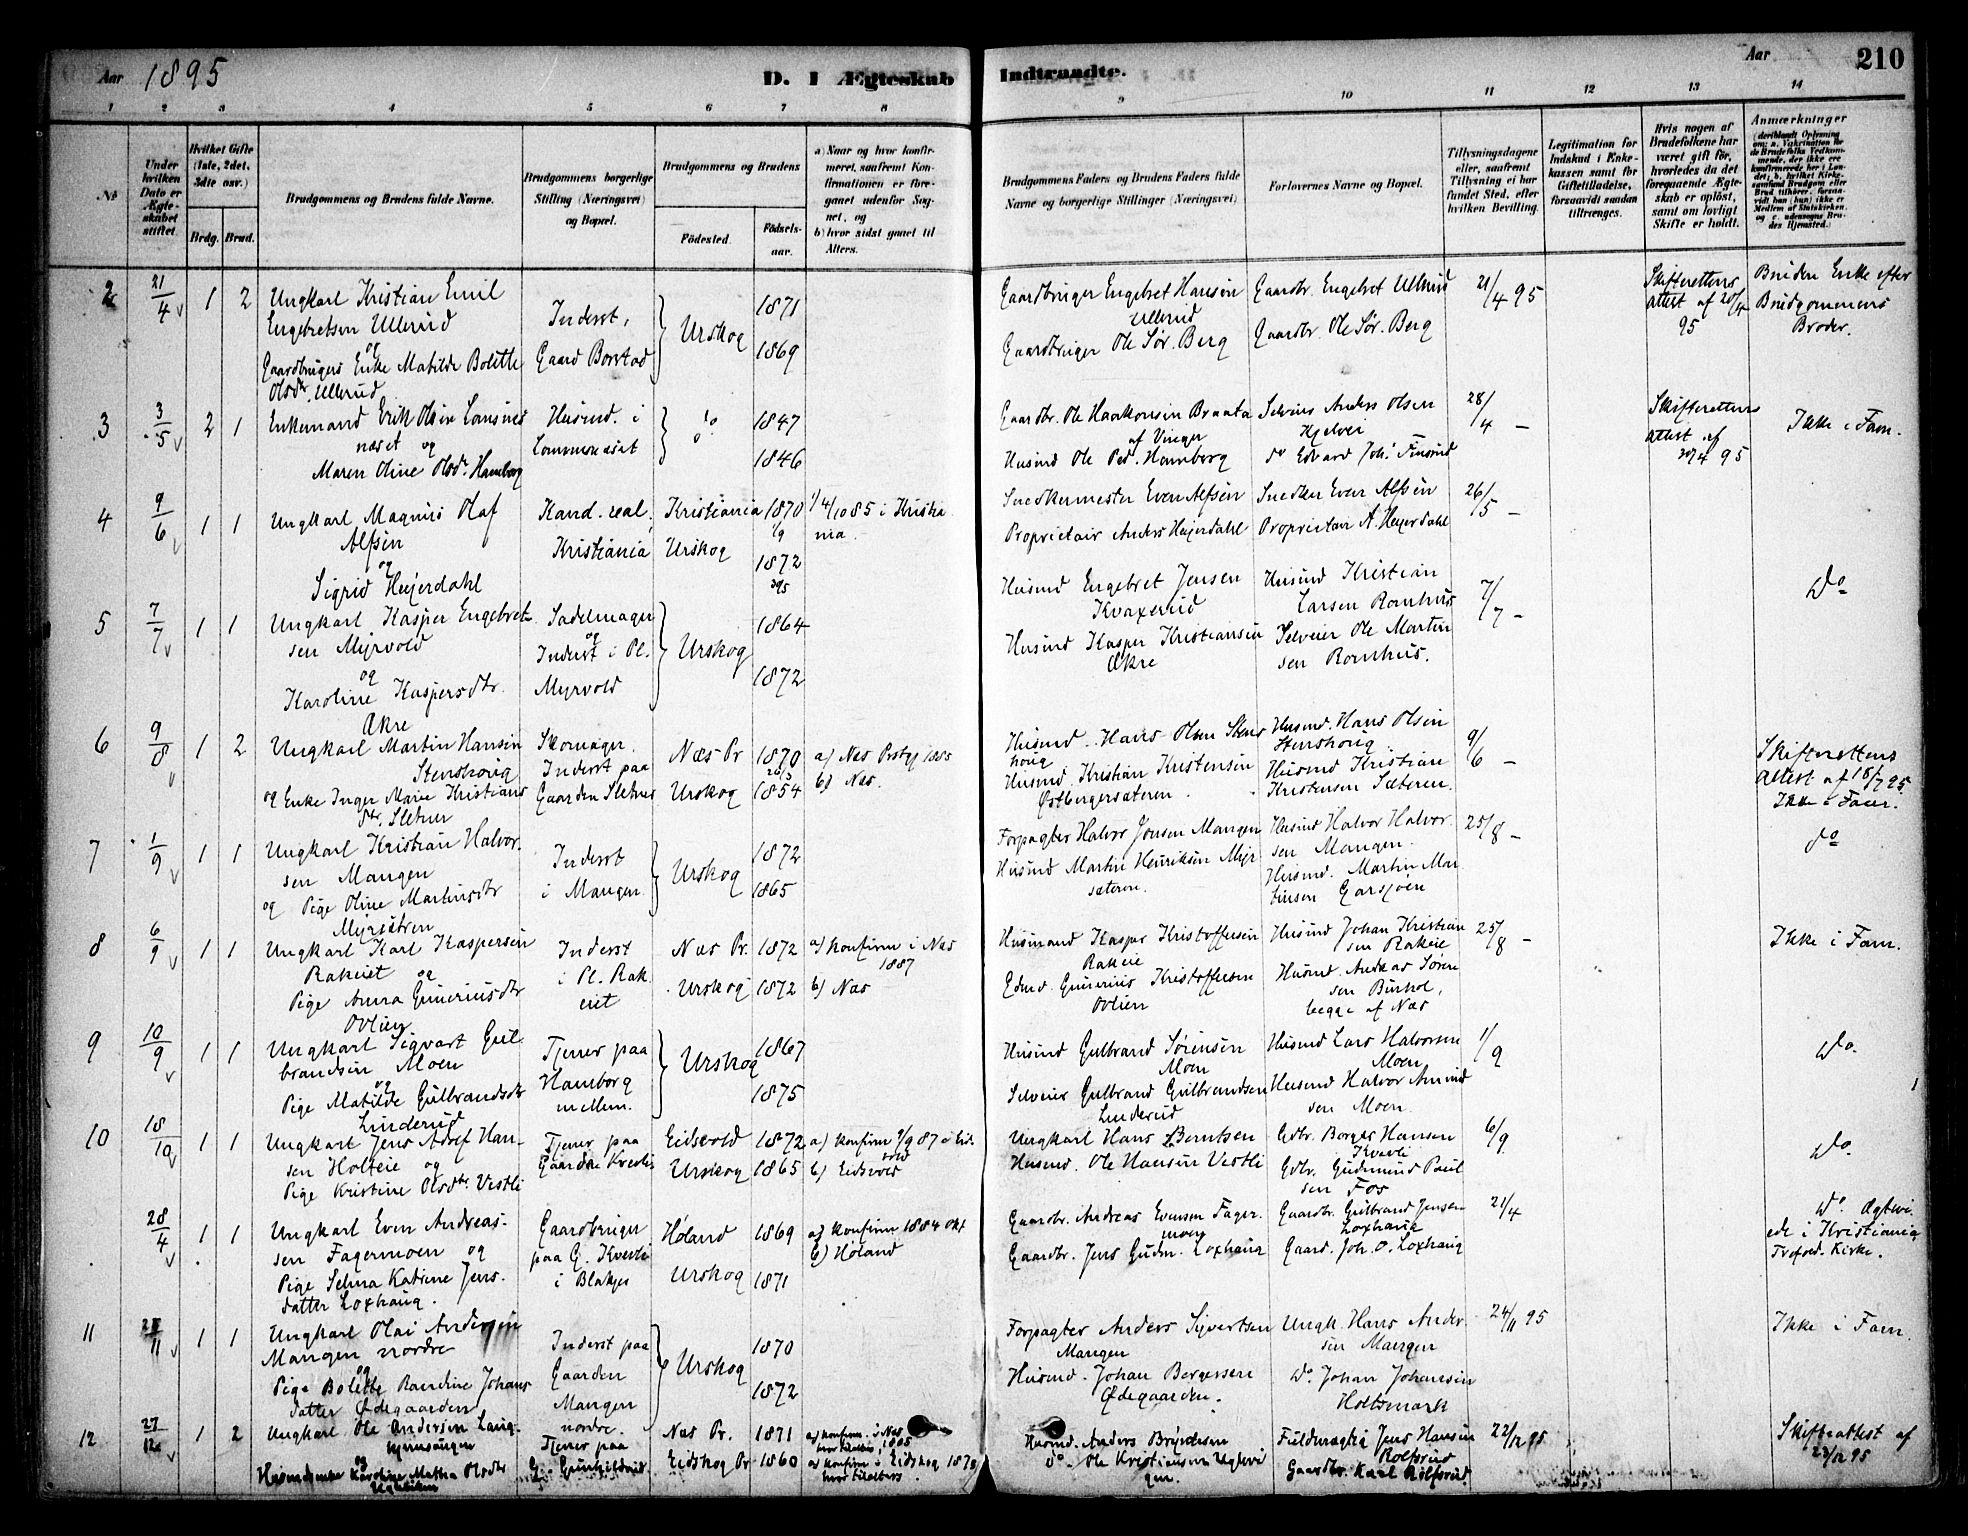 Aar 1895 D. I Ægteskab Indtraadte. Aar 210
1 2 3 4 5 6 7 8 9 10 11 12 13 14
№
Under hvilken Dato er Ægteskabet stiftet.
Hvilket Gifte (1ste, 2det, 3die osv.)
Brdg. Brud.
Brudgommens og Brudens fulde Navne.
Brudgommens borgerlige Stilling (Næringsvei) og Bopæl.
Brudgommens og Brudens
Fødested. Fødselsaar.
a) Naar og hvor konfirmeret, saafremt Konfirmationen er foregaaet udenfor Sognet, og
b) hvor sidst gaaet til Alters.
Brudgommens Faders og Brudens Faders fulde Navne og borgerlige Stillinger (Næringsvei)
Forlovernes Navne og Bopæl.
Tillysningsdagene eller, saafremt Tillysning ei har fundet Sted, efter hvilken Bevilling.
Legitimation for Indskud i Enkekassen samt for Giftetilladelse, forsaavidt saadan tiltrænges.
Hvis nogen af Brudefolkene har været gift før, hvorledes da det foregaaende Ægteskab er opløst, samt om lovligt Skifte er holdt.
Anmærkninger
2 21/4 1 2 Ungkarl Kristian Emil
Engebretsen Ullerud
og
Gaardbrugers Enke Matilde Bolette
Olsdtr. Ullerud
Inderst,
Gaard Borstad
Urskog
1871
1869
Gaardbruger Engebret Hansen
Ullerud
Gaardbruger Ole Sør. Berg
Gaardbr. Engebret Ullerud
Gaardbr. Ole Sør. Berg
21/4 95
Skifterettens
attest af 20/4
95
Bruden Enke efter
Brudgommens
Broder.
3 3/5 2 1 Enkemand Erik Olsen
næset og
Maren Oline Olsdtr. Hamborg
Husmd. i
1847
1846
Gaardbr. Ole Haakonsen Braata
af Vinger
Husmd Ole Ped. Hamborg
Selveier Anders Olsen
do Edvard Joh.
28/4 –
Skifterettens
attest af
20/4 95
Ikke i Fam.
4 9/6 1 1 Ungkarl Magnus Olaf
Alfsen
og
Sigrid Heyerdahl
Kand. real.
Kristiania
Kristiania
Urskog
1870
1/9
1872
4/10 85 i Kristia
nia.
Snedkermester Even Alfsen
Proprietair Anders Heyerdahl
Snedker Even Alfsen
Proprietair A. Heyerdahl
26/5 –
5 7/7 1 1 Ungkarl Kasper Engebret-
sen Myrvold
og
Karoline Kaspersdtr.
Økre
Sadelmager
og
Inderst i Pl.
Myrvold
Urskog
1864
1872
Husmd Engebret Jensen
Kvaxerud
Husmd Kasper Kristiansen
Økre
Husmd Kristian
Larsen Romhus
Selveier Ole Martin
sen Romhus.
7/7 –
Do
6 9/8 1 2 Ungkarl Martin Hansen
Stenshoug
og Enke Inger Marie Kristians
dtr. Sletner
Skomager.
Inderst paa
Gaarden Sletner
Næs Pr
Urskog
1870
26/3
1854
a) Næs Prstgj 1885
b) Næs.
Husmd. Hans Olsen Stens
houg
Husmd. Kristian Kristensen
Østbergersæteren.
Husmd. Hans Olsen
Stenshoug
Husmd Kristian
Kristensen Sæteren.
9/6 –
Skifterettens
Attest af 18/7 95.
Ikke i Fam.
7 1/9 1 1 Ungkarl Kristian Halvor-
sen Mangen
og Pige Oline Martinsdtr
Myrsætren
Inderst
i Mangen
Urskog
1872
1865
Forpagter Halvor Jensen Mangen
Husmd Martin Henriksen Myr
sæteren.
Husmd Halvor Halvor-
sen Mangen.
Husmd. Martin Mar
tinsen Garsjøen
25/8 –
do
8 6/9 1 1 Ungkarl Karl Kaspersen
Rakeiet og
Pige Anna Guneriusdtr
Ovlien
Inderst
i Pl. Rak
eiet
Næs Pr.
Urskog
1872
1872
a) Konfirm i Næs
1887
b) Næs
Husmand Kasper Kristoffersen
Rakeie
Gunerius Kristoffersen
Ovlien
Husmd Johan Kristian
sen Rakeie
Husmd. Andreas Søren
sen Burhol,
begge af Næs
25/8 –
Ikke i Fam.
9 10/9 1 1 Ungkarl Sigvart Gul
brandsen Moen
og
Pige Matilde Gulbrandsdtr
Linderud
Tjener paa
Hamborg
mellem.
Urskog
1867
1875
Husmd Gulbrand Sørensen
Moen
Selveier Gulbrand Gulbrandsen
Linderud
Husmd Lars Halvorsen
Moen
Husmd Halvor Amund
sen Moen.
1/9
Do.
10 18/10 1 1 Ungkarl Jens Adolf Han-
sen Holteie og
Pige Kristine Olsdtr. Vestli
Tjener paa
Gaarden Kvevli
Eidsvold
Urskog
1872
1865
a) Konfirm 1/9 87 i Eids
vold
b) Eidsvold
Ungkarl Hans Berntsen
Husmd. Ole Hansen Vestli
Gdbr. Borger Hansen
Kvevli
Gdbr. Gudmund Paul
sen Fos
6/9
Do.
28/4 1 1 Ungkarl Even Andreas-
sen Fagermoen og
Pige Selma Katrine Jens-
datter Loxhaug.
Gaardbruger
paa G. Kvevli
i Blakjer
Høland
Urskog
1869
1871
a) Konfirm 1884 Okt
b) Høland
Gaardbr. Andreas Evensen Fager-
moen
Gaardbr. Jens Gudm. Loxhaug
Gaardbr. Gulbrand Jensen
Loxhaug
Gaard. Joh. O. Loxhaug
21/4
Do Ægtvi
ede i Kristiania
Trefold. Kirke.
11 28/11 1 1 Ungkarl Olai Andersen
Mangen nordre
og
Pige Bolette Randine Johans
datter Ødegaarden
Inderst paa
Gaarden
Mangen
nordre.
Urskog
1870
1872
Forpagter Anders Syvertsen
Mangen
Husmd. Johan Bergersen
Ødegaarden.
Ungk. Hans Ander-
sen Mangen
Do Johan Johansen
Holtsmark
24/11 95
Ikke i Fam.
12 27/12 1 2 Ungkarl Ole Andersen Lang-
og
Karoline Mathea Olsdtr
Tjener paa
Næs Pr.
Eidskog Pr
1871
1860
a) Konfirm. i Næs
a) Konfirm i Eidskog 1878
Husmd. Anders Brynildsen
do Ole Kristiansen
Jens Hansen
Rolfsrud
Gaardbr. Karl Rolfsrud.
22/12 95
Skifteattest af
23/12 95